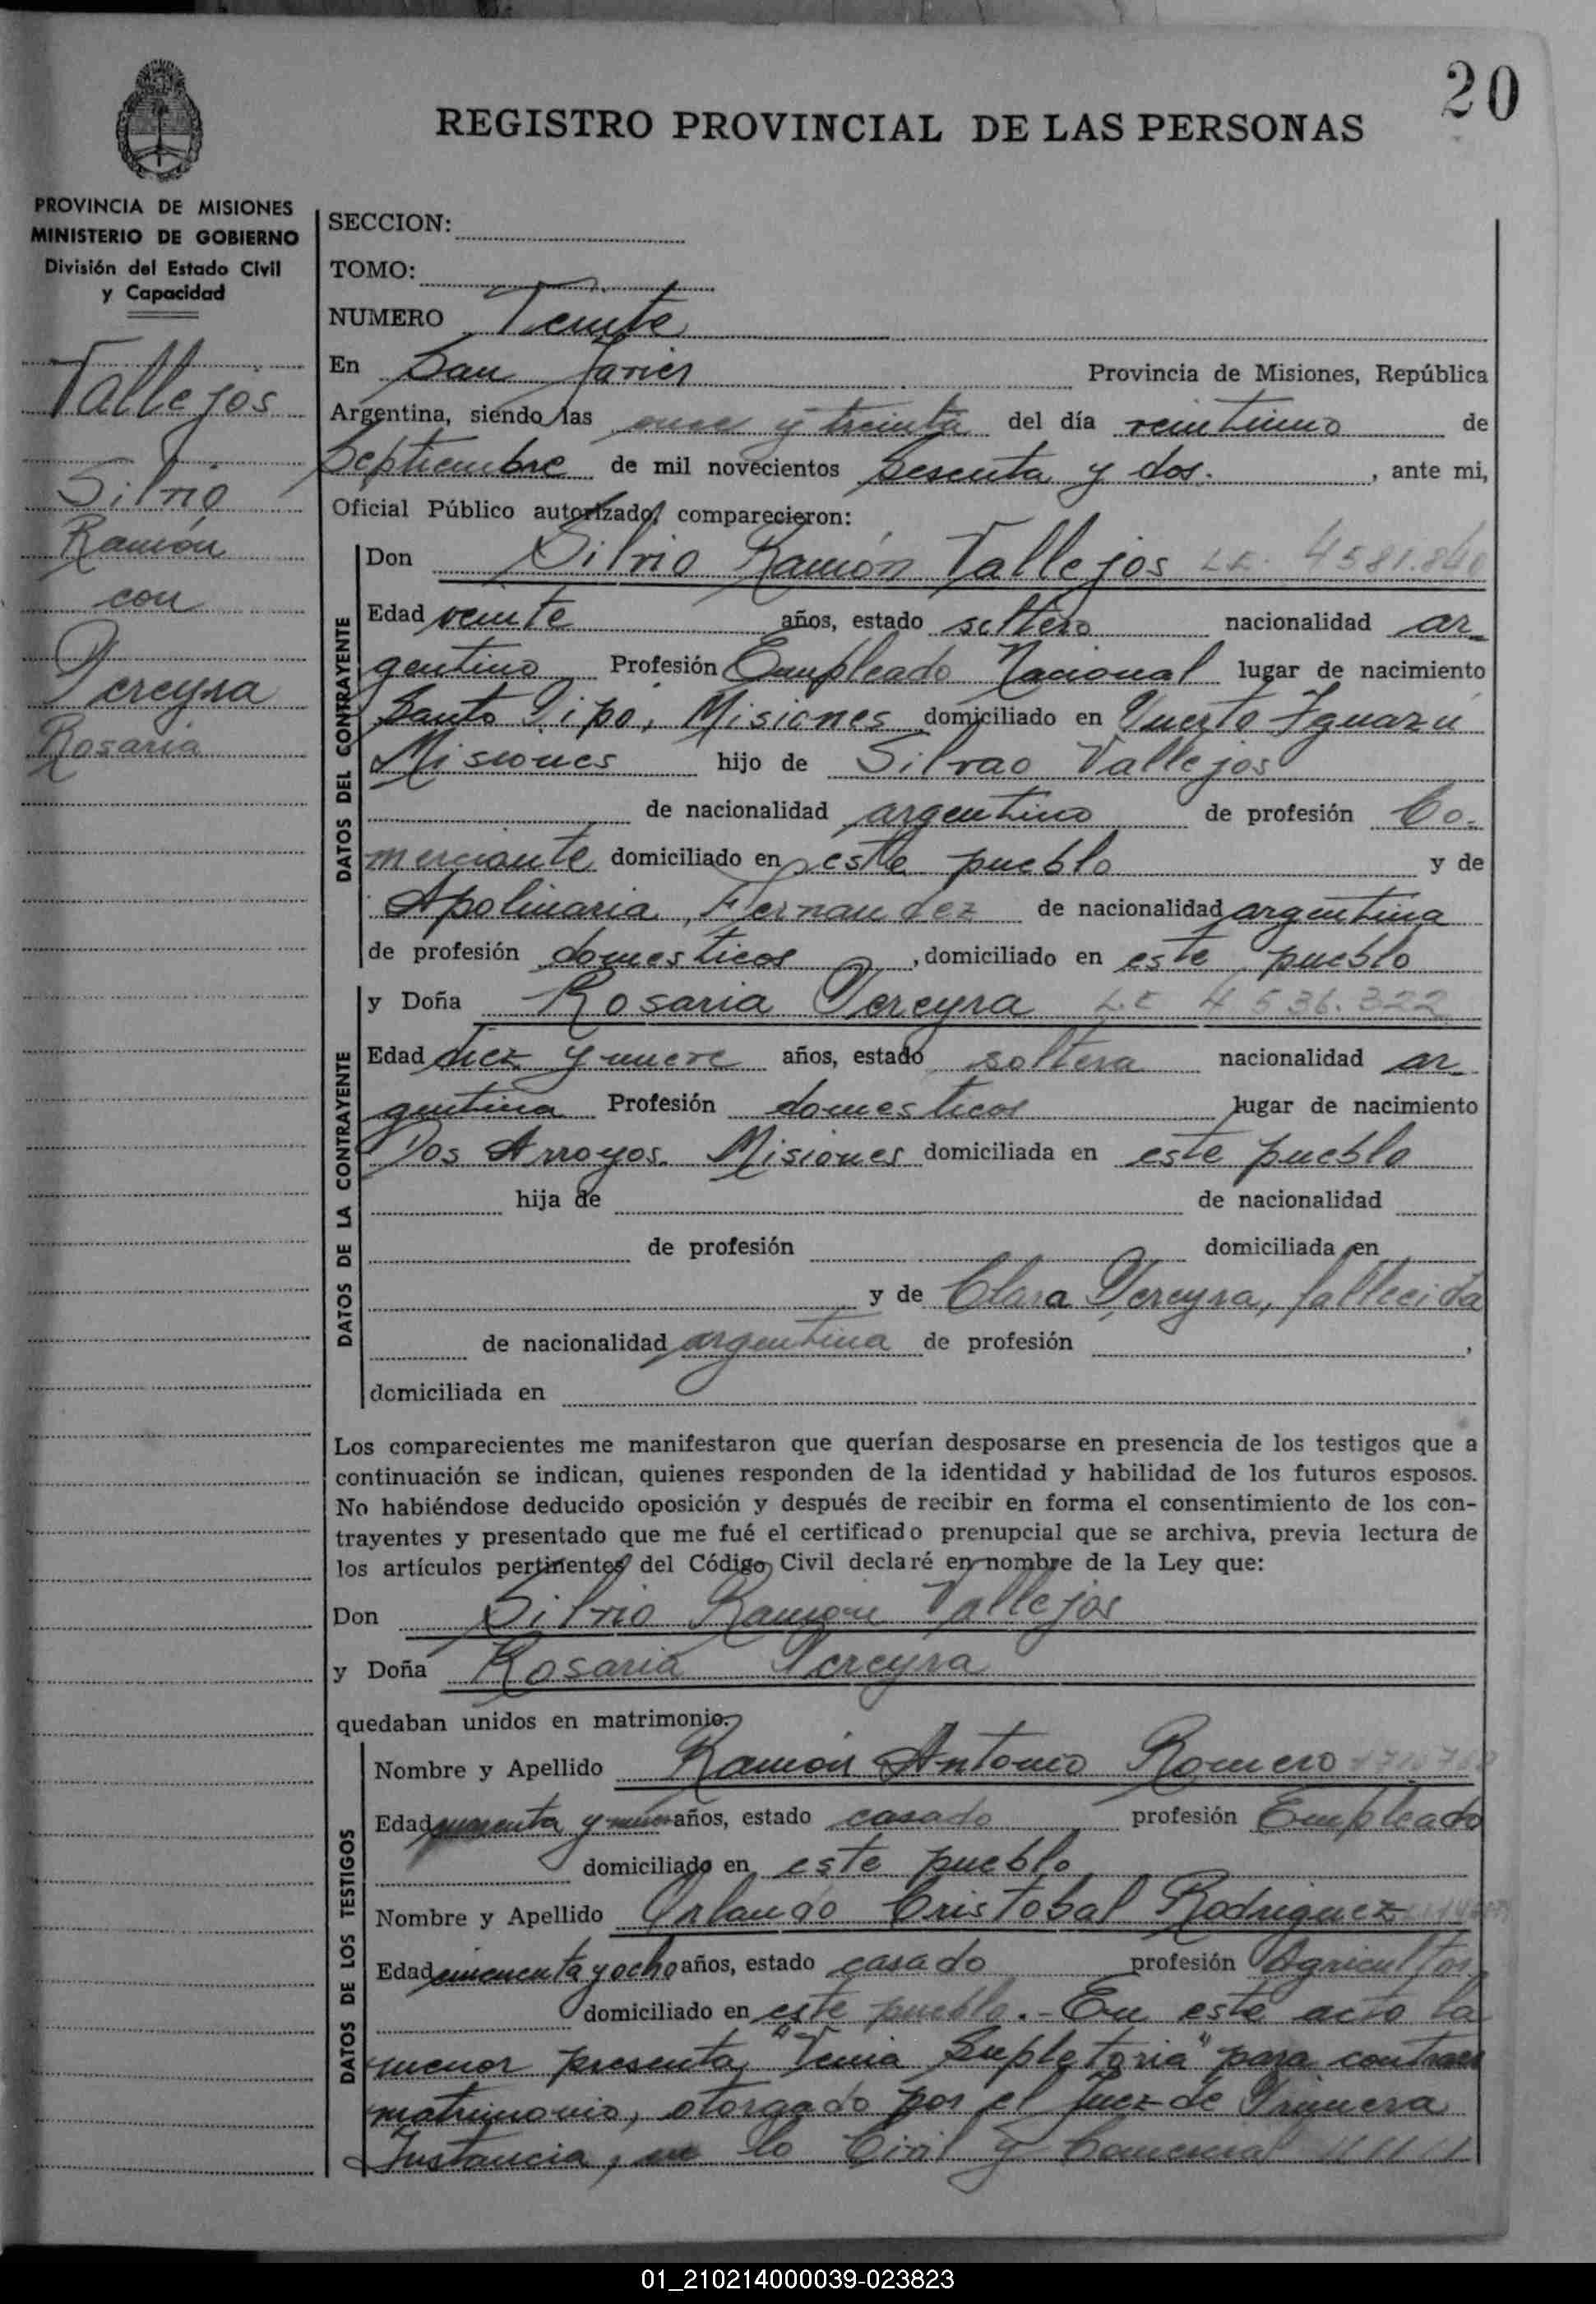 20
REGISTRO PROVINCIAL DE LAS PERSONAS
PROVINCIA DE MISIONES
MINISTERIO DE GOBIERNO
División del Estado Civil
y Capacidad
Vallejos
Silvio
Ramón
con
Pereyra
Rosaria
SECCION:
TOMO:
NUMERO Veinte
En San Javier Provincia de Misiones, República
Argentina, siendo las once y treinta del día veintiuno de
Septiembre de mil novecientos Sesenta y dos. , ante mi,
Oficial Público autorizado, comparecieron:
DATOS DEL CONTRAYENTE
Don Silvio Ramón Vallejos L.E. 4581.840
Edad veinte años, estado soltero nacionalidad ar-
gentino Profesión Empleado Nacional lugar de nacimiento
Santo Pipó, Misiones domiciliado en Puerto Iguazú
Misiones hijo de Silvao Vallejos
de nacionalidad argentino de profesión Co-
merciante domiciliado en este pueblo y de
Apolinaria Fernandez de nacionalidad argentina
de profesión domesticos , domiciliado en este pueblo
DATOS DE LA CONTRAYENTE
y Doña Rosaria Pereyra L.C 4536.322
Edad diez y nueve años, estado soltera nacionalidad ar-
gentina Profesión domesticos lugar de nacimiento
Dos Arroyos. Misiones domiciliada en este pueblo
hija de de nacionalidad
de profesión domiciliada en
y de Clara Pereyra, fallecida
de nacionalidad argentina de profesión ,
domiciliada en
Los comparecientes me manifestaron que querían desposarse en presencia de los testigos que a
continuación se indican, quienes responden de la identidad y habilidad de los futuros esposos.
No habiéndose deducido oposición y después de recibir en forma el consentimiento de los con-
trayentes y presentado que me fué el certificado prenupcial que se archiva, previa lectura de
los artículos pertinentes del Código Civil declaré en nombre de la Ley que:
Don Silvio Ramón Vallejos
y Doña Rosaria Pereyra
quedaban unidos en matrimonio.
DATOS DE LOS TESTIGOS
Nombre y Apellido Ramón Antonio Romero
Edad y años, estado casado profesión Empleado
domiciliado en este pueblo
Nombre y Apellido Orlando Cristobal Rodriguez
Edad cincuenta y ocho años, estado casado profesión Agricultor
domiciliado en este pueblo. - En este acto la
menor presenta "Venia Supletoria" para contraer
matrimonio, otorgado por el Juez de Primera
Instancia, en lo Civil y Comercial
01_210214000039-023823